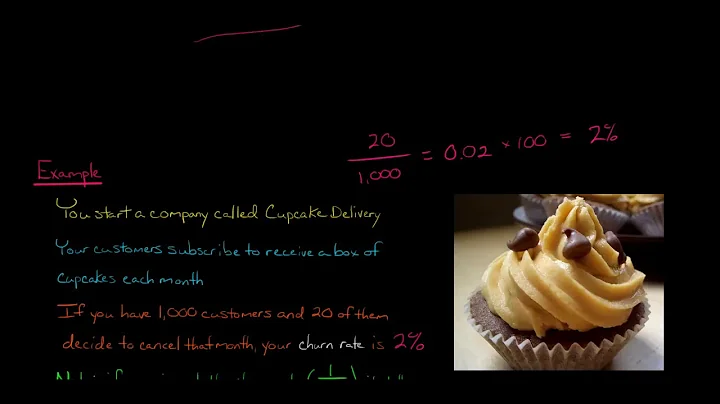 20
1,000
= 0.02 × 100 = 2%
Example
You start a company called Cupcake Delivery
Your customers subscribe to receive a box of
cupcakes each month
If you have 1,000 customers and 20 of them
decide to cancel that month, your churn rate is 2%